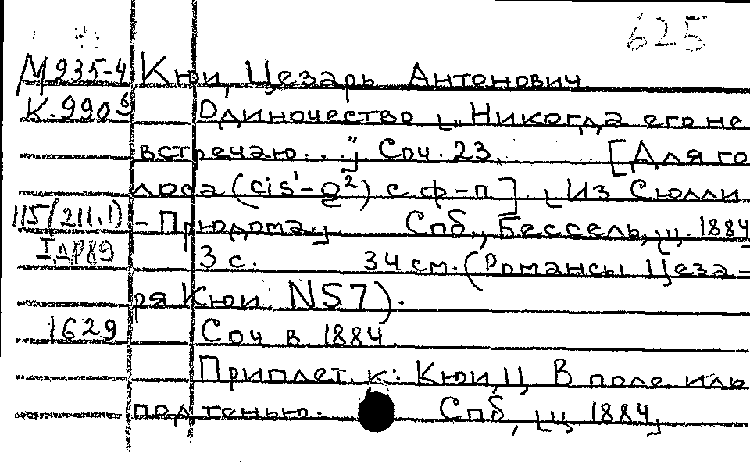 625
М 935-4 Кюи, Цезарь Антонович
К.990⁶ Одиночество [„Никогда его не
встречаю...”] Соч. 23. [Для го-
лоса (cis¹-g²) с ф-п]. [Из Сюлли
115(211.1) - Прюдома.] Спб., Бессель, ц. 1884
IДР89 3 с. 34 см. (Романсы Цеза-
ря Кюи. N57).
1629 Соч в 1884
Приплет. к: Кюи, Ц. В поле иль
под тенью. Спб, [ц 1884]